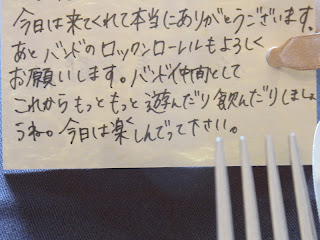 今日は来てくれて本当にありがとうございます。
あとバンドのロックンロールもよろしく
お願いします。バンド仲間として
これからもっともっと遊んだり飲んだりしましょ
うね。今日は楽しんでって下さい。